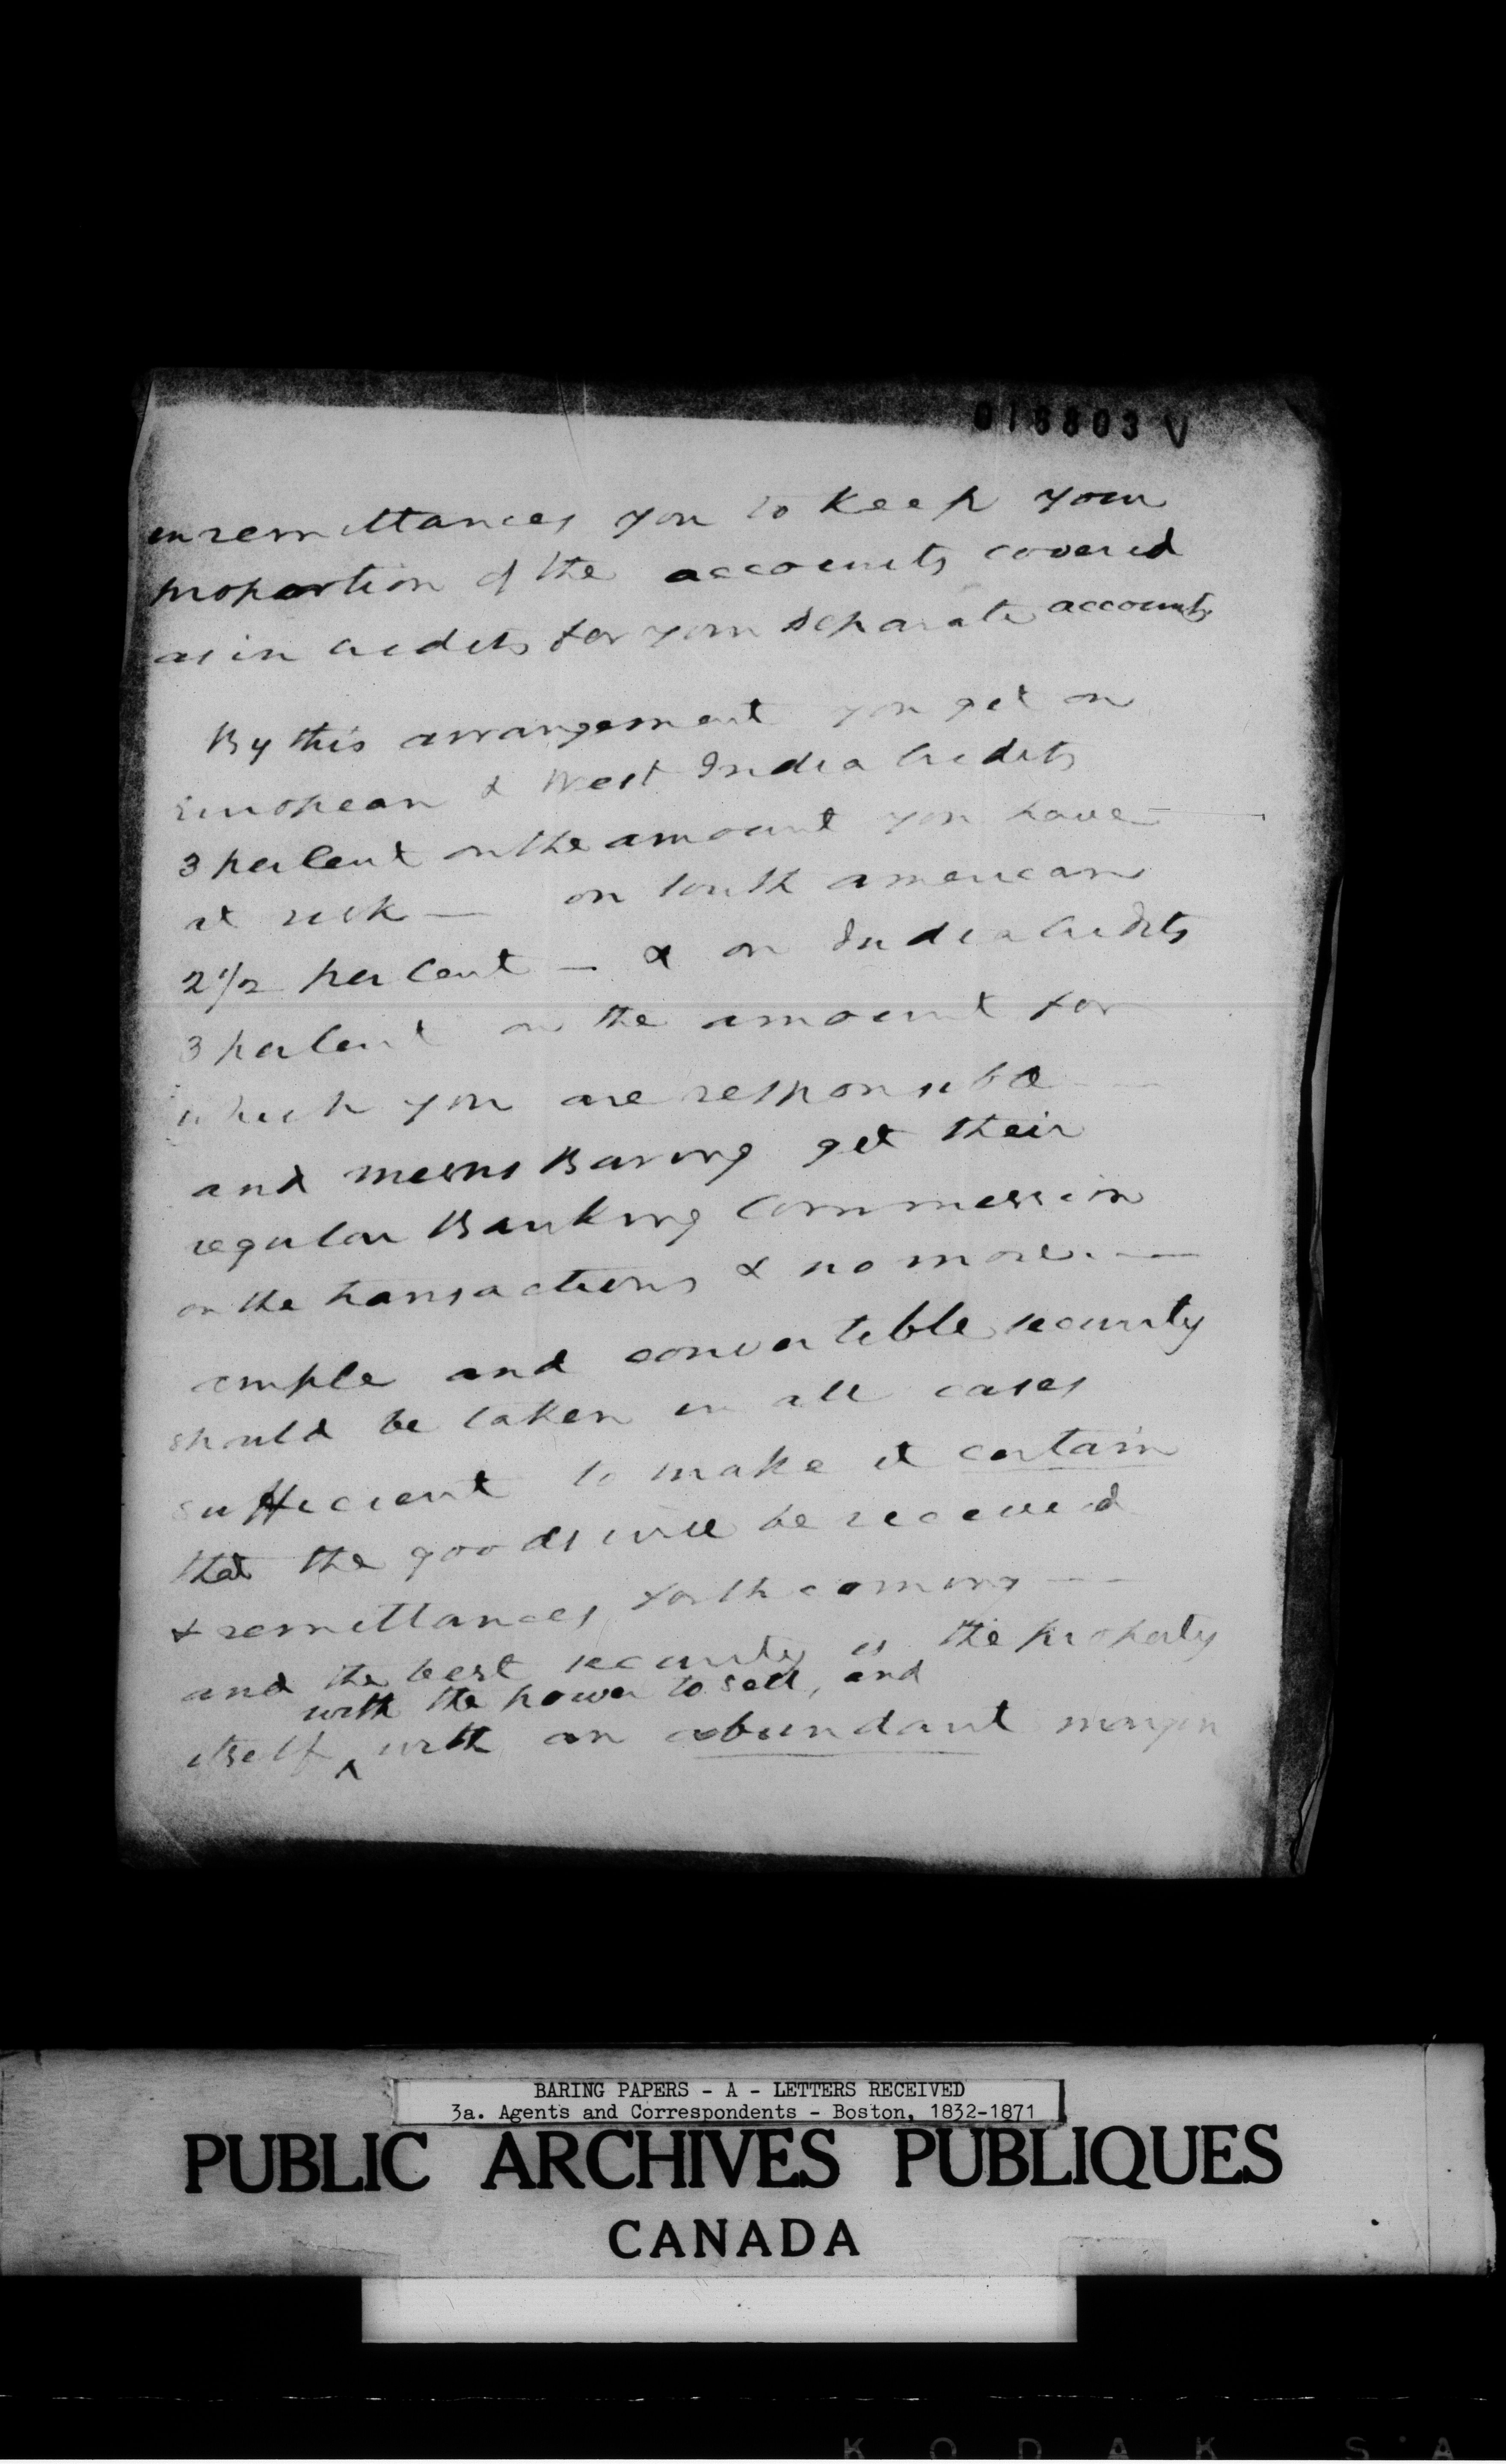 016803 V
in remittances you to keep your
proportion of the accounts covered
as in credits for your separate accounts
By this arrangement you get on
European & West India Credits
3 per Cent on the amount you have
at risk — on South american
2 1/2 per Cent — & on India Credits
3 per Cent on the amount for
which you are responsible
and messrs Baring get their
regular Banking Commission
on the transactions & no more. —
ample and convertible security
should be taken in all cases
sufficient to make it certain
that the goods will be received
& remittances forthcoming —
and the best security is the property
with the power to sell, and
itself ^ with an abundant margin
BARING PAPERS - A - LETTERS RECEIVED
3a. Agents and Correspondents - Boston, 1832-1871
PUBLIC ARCHIVES PUBLIQUES
CANADA
KODAK S'A